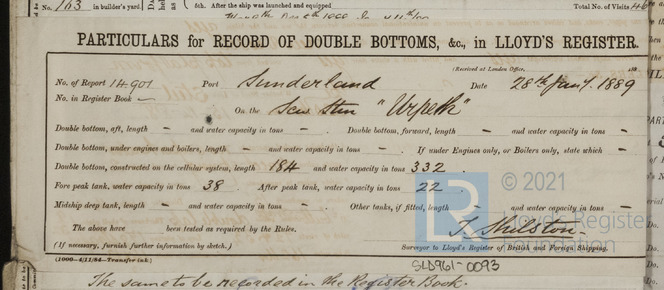 No. 163 in builder's yard.
6th. After the ship was launched and equipped
Total No. of Visits 46
PARTICULARS for RECORD OF DOUBLE BOTTOMS, &c., in LLOYD'S REGISTER.
(Received at London Office, 188
No. of Report 14901 Port Sunderland Date 28th Jany. 1889
No. in Register Book —
On the Screw Stmr "Urpeth"
Double bottom, aft, length - and water capacity in tons - . Double bottom, forward, length - and water capacity in tons -
Double bottom, under engines and boilers, length - and water capacity in tons - . If under Engines only, or Boilers only, state which -
Double bottom, constructed on the cellular system, length 184 and water capacity in tons 332 .
Fore peak tank, water capacity in tons 38 After peak tank, water capacity in tons 22
© 2021
Midship deep tank, length - and water capacity in tons - . Other tanks, if fitted, length - and water capacity in tons -
Lloyd's Register Foundation
The above have been tested as required by the Rules.
(If necessary, furnish further information by sketch.)
Surveyor to Lloyd's Register of British and Foreign Shipping.
(1000—4/11/84—Transfer ink)
SLD961-0093
The same to be recorded in the Register Book.